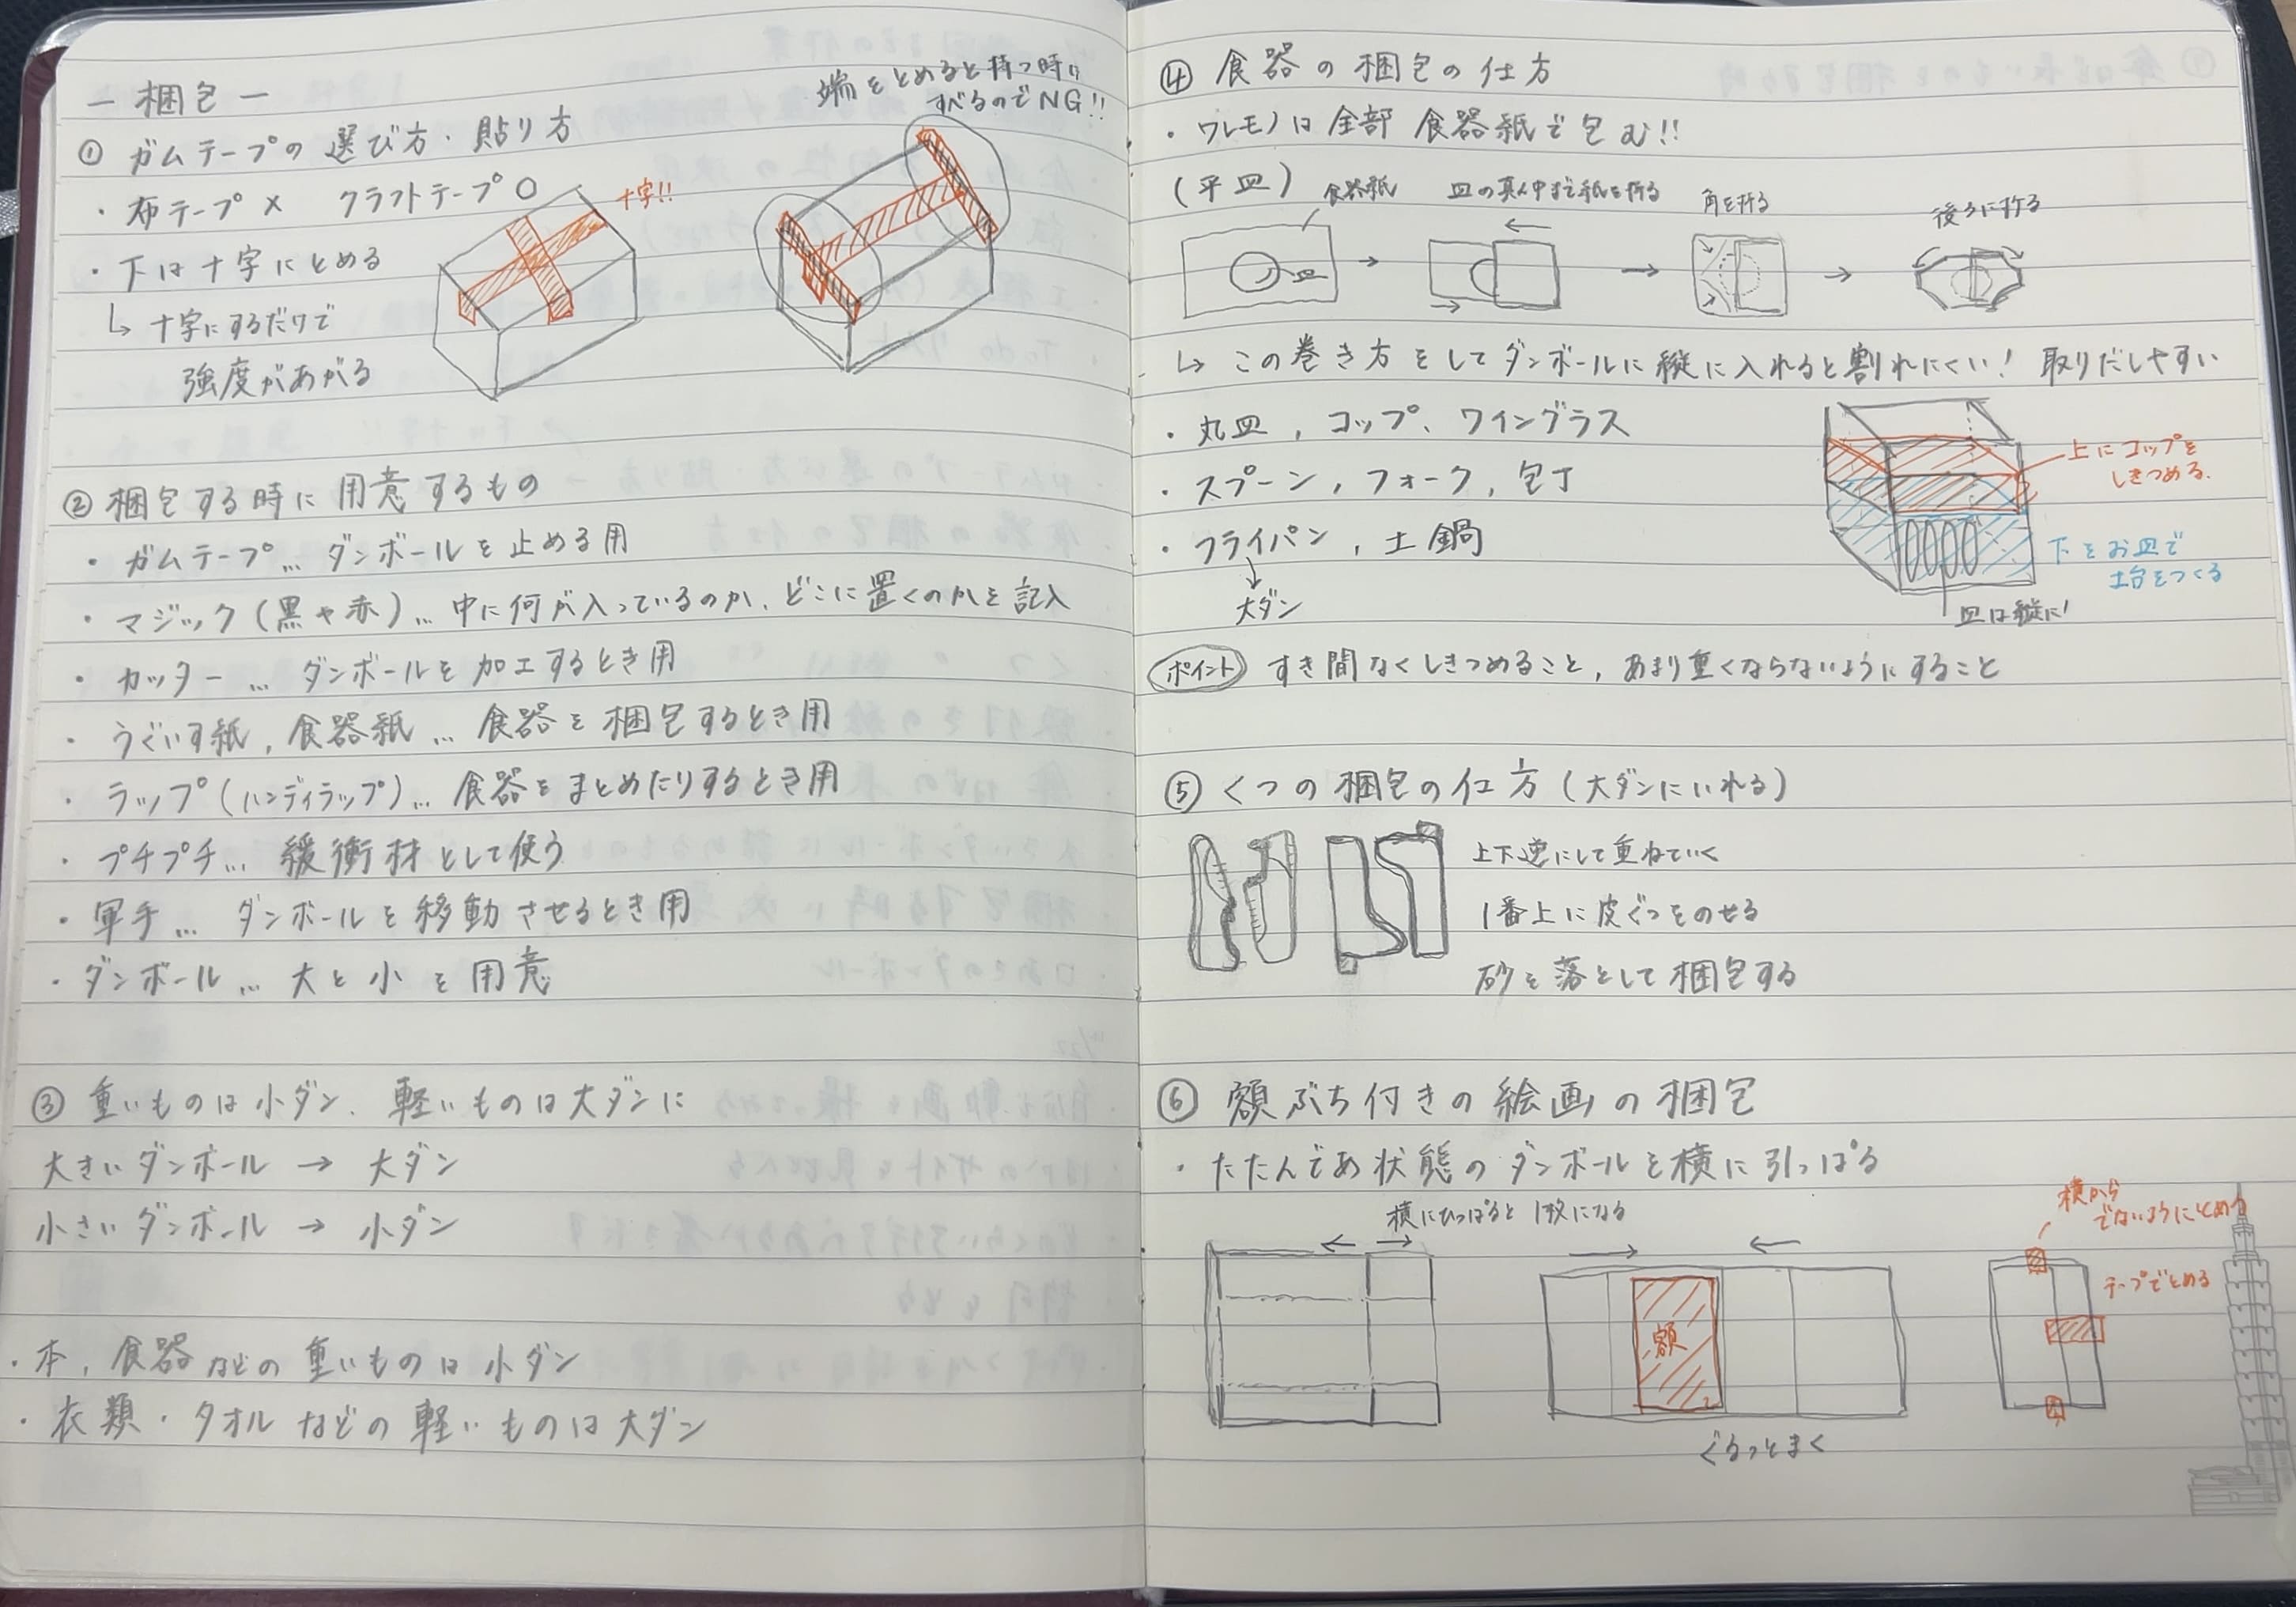 －梱包－
① ガムテープの選び方・貼り方
・布テープ× クラフトテープ○
・下は十字にとめる
↳ 十字にするだけで
強度があがる
十字!!
端をとめると持つ時に
すべるのでNG!!
② 梱包する時に用意するもの
・ガムテープ… ダンボールを止める用
・マジック(黒や赤)… 中に何が入っているのか、どこに置くのかを記入
・カッター … ダンボールを加工するとき用
・うぐいす紙, 食器紙 … 食器を梱包するとき用
・ラップ(ハンディラップ)… 食器をまとめたりするとき用
・プチプチ… 緩衝材として使う
・軍手… ダンボールを移動させるとき用
・ダンボール… 大と小を用意
③ 重いものは小ダン、軽いものは大ダンに
大きいダンボール → 大ダン
小さいダンボール → 小ダン
・本, 食器などの重いものは小ダン
・衣類・タオルなどの軽いものは大ダン
④ 食器の梱包の仕方
・ワレモノは全部食器紙で包む!!
(平皿)
食器紙
皿
皿の真ん中まで紙を折る
角を折る
後ろに折る
↳ この巻き方をしてダンボールに縦に入れると割れにくい! 取りだしやすい
・丸皿, コップ、ワイングラス
・スプーン, フォーク, 包丁
・フライパン, 土鍋
↓
大ダン
上にコップを
しきつめる.
下をお皿で
土台をつくる
皿は縦に!
ポイント すき間なくしきつめること, あまり重くならないようにすること
⑤ くつの梱包の仕方(大ダンにいれる)
上下逆にして重ねていく
1番上に皮ぐつをのせる
砂を落として梱包する
⑥ 額ぶち付きの絵画の梱包
・たたんであ状態のダンボールを横に引っぱる
横にひっぱると1枚になる
額
ぐるっとまく
横から
でないようにとめる
テープでとめる